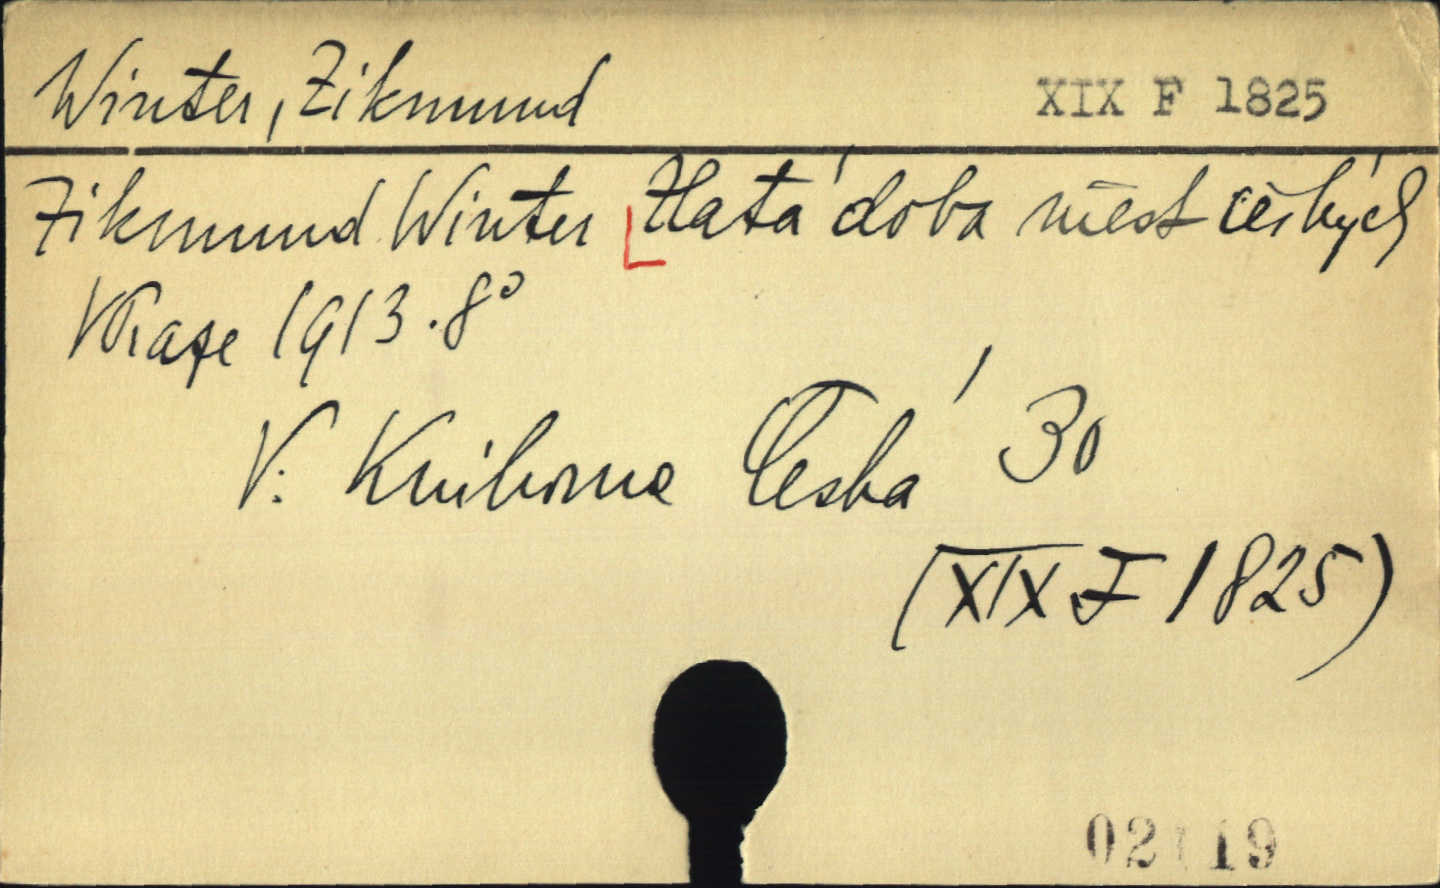 Winter, Zikmund
XIX F 1825
Zikmund Winter Zlatá doba měst českých
V Praze 1913. 8°
V: Knihovna Česká 30
(XIX F 1825)
02 19